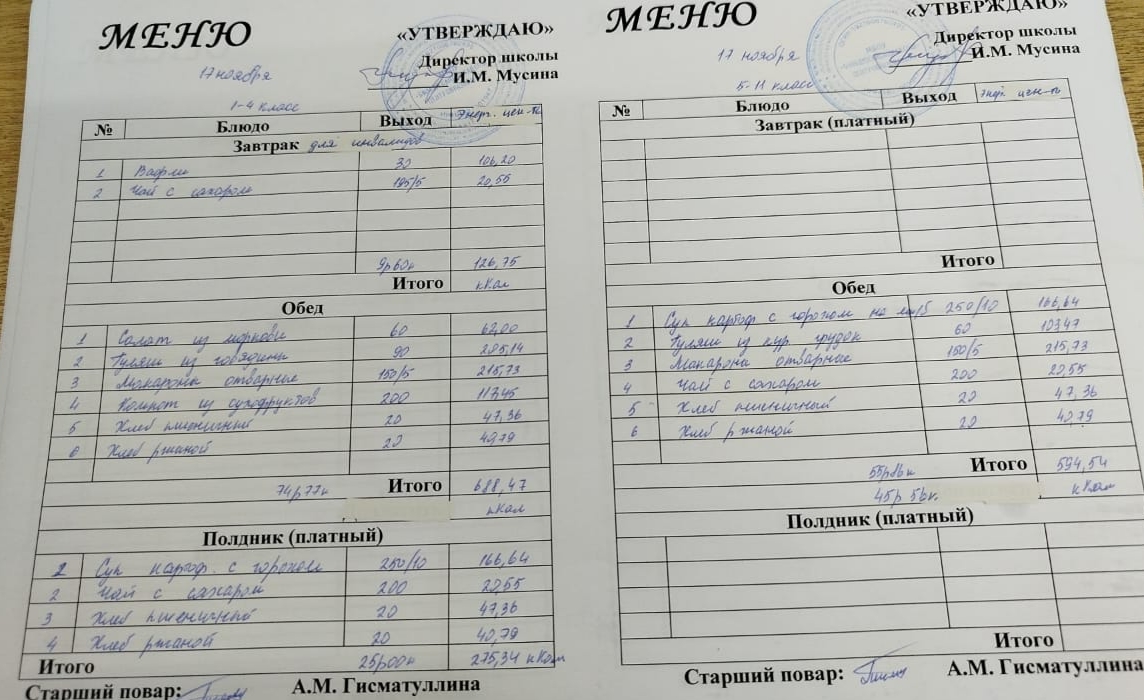 МЕНЮ
«УТВЕРЖДАЮ»
Директор школы
И.М. Мусина
17 ноября
1-4 класс
№ Блюдо Выход Энерг. цен-ть
Завтрак для инвалидов
1 Вафли 30 106,20
2 Чай с сахаром 195/5 20,55
9р60к 126,75
Итого кКал
Обед
1 Салат из моркови 60 62,00
2 Гуляш из говядины 90 205,14
3 Макароны отварные 150/5 215,73
4 Компот из сухофруктов 200 117,45
5 Хлеб пшеничный 20 47,36
6 Хлеб ржаной 20 40,79
74р77к Итого 688,47
кКал
Полдник (платный)
1 Суп картоф. с горохом 250/10 166,64
2 Чай с сахаром 200 20,55
3 Хлеб пшеничный 20 47,36
4 Хлеб ржаной 20 40,79
Итого 25р00к 275,34 кКал
Старший повар: А.М. Гисматуллина
МЕНЮ
«УТВЕРЖДАЮ»
Директор школы
И.М. Мусина
17 ноября
5-11 класс
№ Блюдо Выход Энерг. цен-ть
Завтрак (платный)
Итого
Обед
1 Суп картоф. с горохом на 250/10 166,64
2 Гуляш из кур. грудок 60 103,47
3 Макароны отварные 150/5 215,73
4 Чай с сахаром 200 20,55
5 Хлеб пшеничный 20 47,36
6 Хлеб ржаной 20 40,79
55р86к Итого 594,54
45р 56к. кКал
Полдник (платный)
Итого
Старший повар: А.М. Гисматуллина